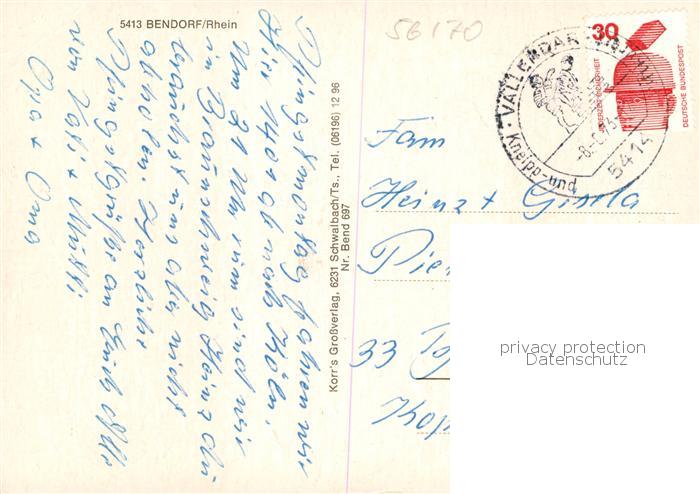 5413 BENDORF/Rhein
Pfingstmontag fahren wir
hier 1401 ab nach Köln.
Um 21 Uhr rum sind wir
in Braunschweig Heinz du
brauchst uns aber nicht
abholen. Herzliche
Pfingstgrüße an Euch alle
von Vati + Mutti
Opa + Oma
Korr's Großverlag, 6231 Schwalbach/Ts., Tel. (06196) 12 96
Nr. Bend 697
56170
30
JEDERZEIT SICHERHEIT
DEUTSCHE BUNDESPOST
VALLENDAR
5414
Kneipp-und
Fam
Heinz + Gisela
33
privacy protection
Datenschutz